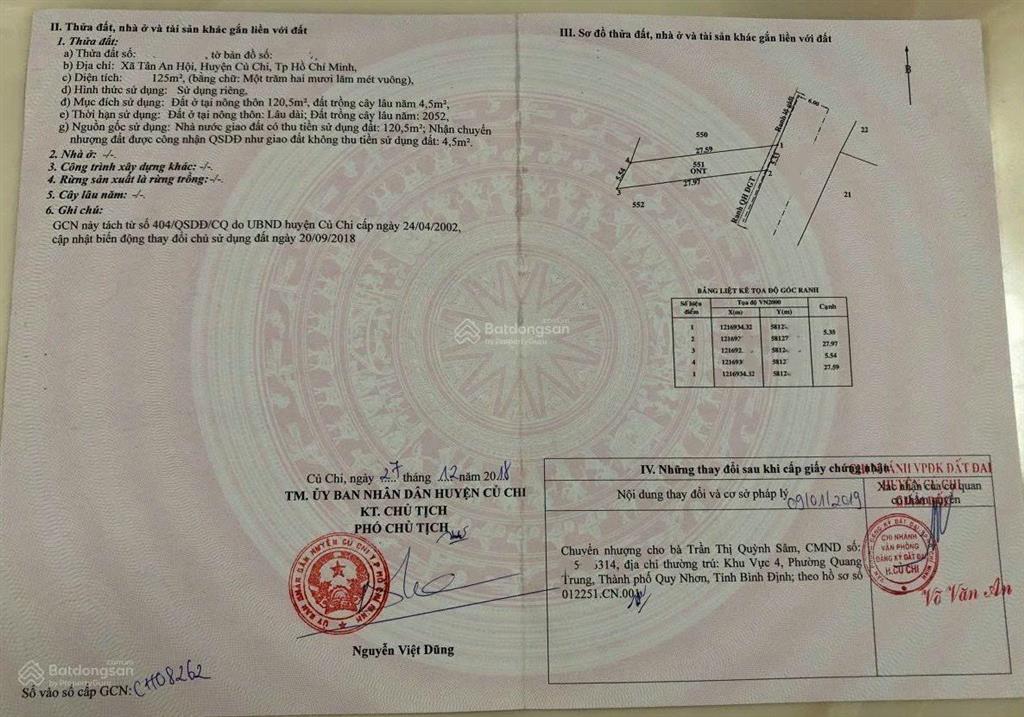 II. Thửa đất, nhà ở và tài sản khác gắn liền với đất
1. Thửa đất:
a) Thửa đất số: , tờ bản đồ số:
b) Địa chỉ: Xã Tân An Hội, Huyện Củ Chi, Tp Hồ Chí Minh,
c) Diện tích: 125m², (bằng chữ: Một trăm hai mươi lăm mét vuông),
d) Hình thức sử dụng: Sử dụng riêng,
đ) Mục đích sử dụng: Đất ở tại nông thôn 120,5m², đất trồng cây lâu năm 4,5m²,
e) Thời hạn sử dụng: Đất ở tại nông thôn: Lâu dài; Đất trồng cây lâu năm: 2052,
g) Nguồn gốc sử dụng: Nhà nước giao đất có thu tiền sử dụng đất: 120,5m²; Nhận chuyển
nhượng đất được công nhận QSDĐ như giao đất không thu tiền sử dụng đất: 4,5m².
2. Nhà ở: -/-.
3. Công trình xây dựng khác: -/-.
4. Rừng sản xuất là rừng trồng:-/-.
5. Cây lâu năm: -/-.
6. Ghi chú:
GCN này tách từ số 404/QSDĐ/CQ do UBND huyện Củ Chi cấp ngày 24/04/2002,
cập nhật biến động thay đổi chủ sử dụng đất ngày 20/09/2018
Củ Chi, ngày 27 tháng 12 năm 2018
TM. ỦY BAN NHÂN DÂN HUYỆN CỦ CHI
KT. CHỦ TỊCH
PHÓ CHỦ TỊCH
Nguyễn Việt Dũng
Số vào sổ cấp GCN: CH08262
III. Sơ đồ thửa đất, nhà ở và tài sản khác gắn liền với đất
B
Ranh lộ giới
6.00
550
22
27.59
1
551
ONT
5.54
5.35
27.97
2
3
552
Ranh QH ĐGT
21
BẢNG LIỆT KÊ TỌA ĐỘ GÓC RANH
Số hiệu điểm Tọa độ VN2000 Cạnh
X(m) Y(m)
1 1216934.32 5812
5.35
2 121692 58127
27.97
3 121692 5812
5.54
4 121693 5812
27.59
1 1216934.32 5812
IV. Những thay đổi sau khi cấp giấy chứng nhận
Nội dung thay đổi và cơ sở pháp lý
Xác nhận của cơ quan
có thẩm quyền
09/01/2019
CHI NHÁNH VPĐK ĐẤT ĐAI
HUYỆN CỦ CHI
Chuyển nhượng cho bà Trần Thị Quỳnh Sâm, CMND số:
5 314, địa chỉ thường trú: Khu Vực 4, Phường Quang
Trung, Thành phố Quy Nhơn, Tỉnh Bình Định; theo hồ sơ số
012251.CN.001
CHI NHÁNH
VĂN PHÒNG
ĐĂNG KÝ ĐẤT ĐAI
H.CỦ CHI
Võ Văn An
Batdongsan
by PropertyGuru
Batdongsan
by PropertyGuru